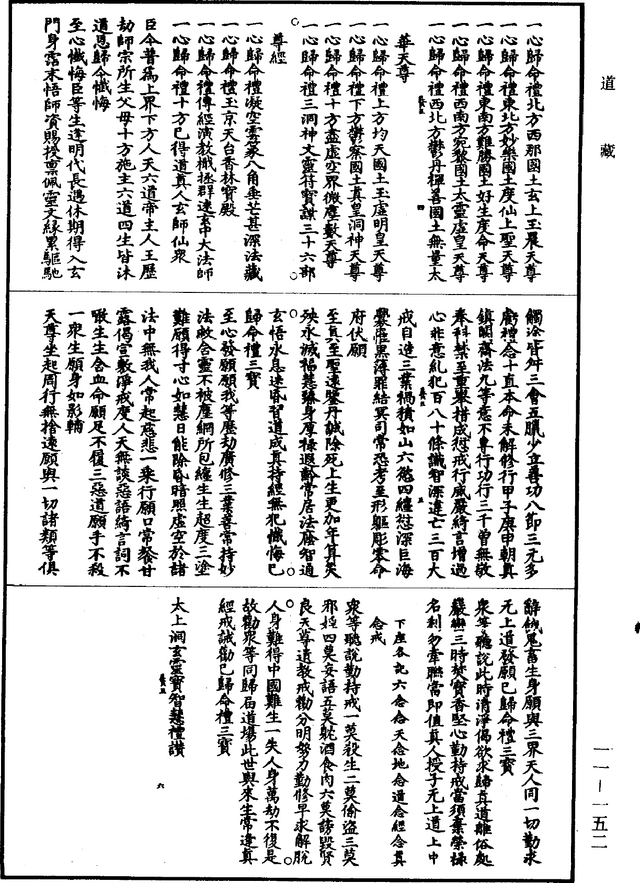 道藏
一心歸命禮北方西那國土玄上玉晨天尊
一心歸命禮東北方妙樂國土度仙上聖天尊
一心歸命禮東南方難勝國土好生度命天尊
一心歸命禮西南方宛黎國土太靈虛皇天尊
一心歸命禮西北方鬱丹禪善國土無量太
華天尊
一心歸命禮上方均天國土玉虛明皇天尊
一心歸命禮下方鬱察國土真皇洞神天尊
一心歸命禮十方盡虛空界微塵數天尊
一心歸命禮三洞神文靈符寶謀三十六部
尊經
一心歸命禮凝空雲篆八角垂芒甚深法藏
一心歸命禮玉京天台香林寶殿
一心歸命禮傳經演教檝拯群迷玄中大法師
一心歸命禮十方已得道真人玄師仙衆
臣今普為上界下方人天六道帝主人王歷
劫師宗所生父母十方施主六道四生皆沐
道恩歸命懺悔
至心懺悔臣等生逢明代長遇休期得入玄
門身霑末悟師資賜授禀佩靈文緣累驅馳
觸塗皆舛三會五臘少立善功八節三元多
虧禮念十直本命未解修行甲子庚申朝真
鎮闕齋法九等意不專行功行三千曽無敬
奉科禁至重舉措成愆戒行威嚴綺言增過
心非意亂犯百八十條識智深違亡三百大
戒目造三業禍積如山六慾四纏愆深巨海
爨罹黑薄罪結冥司常恐考至形軀彫零命
府伏願
至真至聖遠鑒丹誠除死上生更加年筭災
殃永滅福慧臻身厚祿遐齡常居法處智通
玄悟永息迷昏智道成真持經無犯懺悔已
歸命禮三寶
至心發願願我等歷劫廣修三業善常持妙
法啟含靈不被塵網所包纏生生超度三塗
難願得寸心如慧日能除昏暗照虛空於諸
法中無我人常起慈悲一乘行願口常餐甘
露偈宣敷淨戒度人天無談惡語綺言詞不
噉生生含血命願足不履三惡道願手不殺
一衆生願身如影輔
天尊坐起周行無捨遠願與一切諸類等俱
辭餓鬼畜生身願與三界天人同一切勤求
无上道發願已歸命禮三寶
衆等聽說此時清淨偈欲求歸真道離俗處
巖巒三時焚寶香堅心勤持戒當須棄榮祿
名利勿牽聯當即值真人授子无上道上中
下座各記六念念天念地念道念經念真
念戒
衆等聽說勸持戒一莫殺生二莫偷盜三莫
邪婬四莫妄語五莫躭酒食肉六莫謗毀賢
良天尊道教戒勸分明努力勤修早求解脫
人身難得中國難生一失人身萬劫不復是
故勸衆等同歸局道場此世與來生常逢真
經戒誡勸已歸命禮三寶
太上洞玄靈寶智慧禮讃
一一一一五二